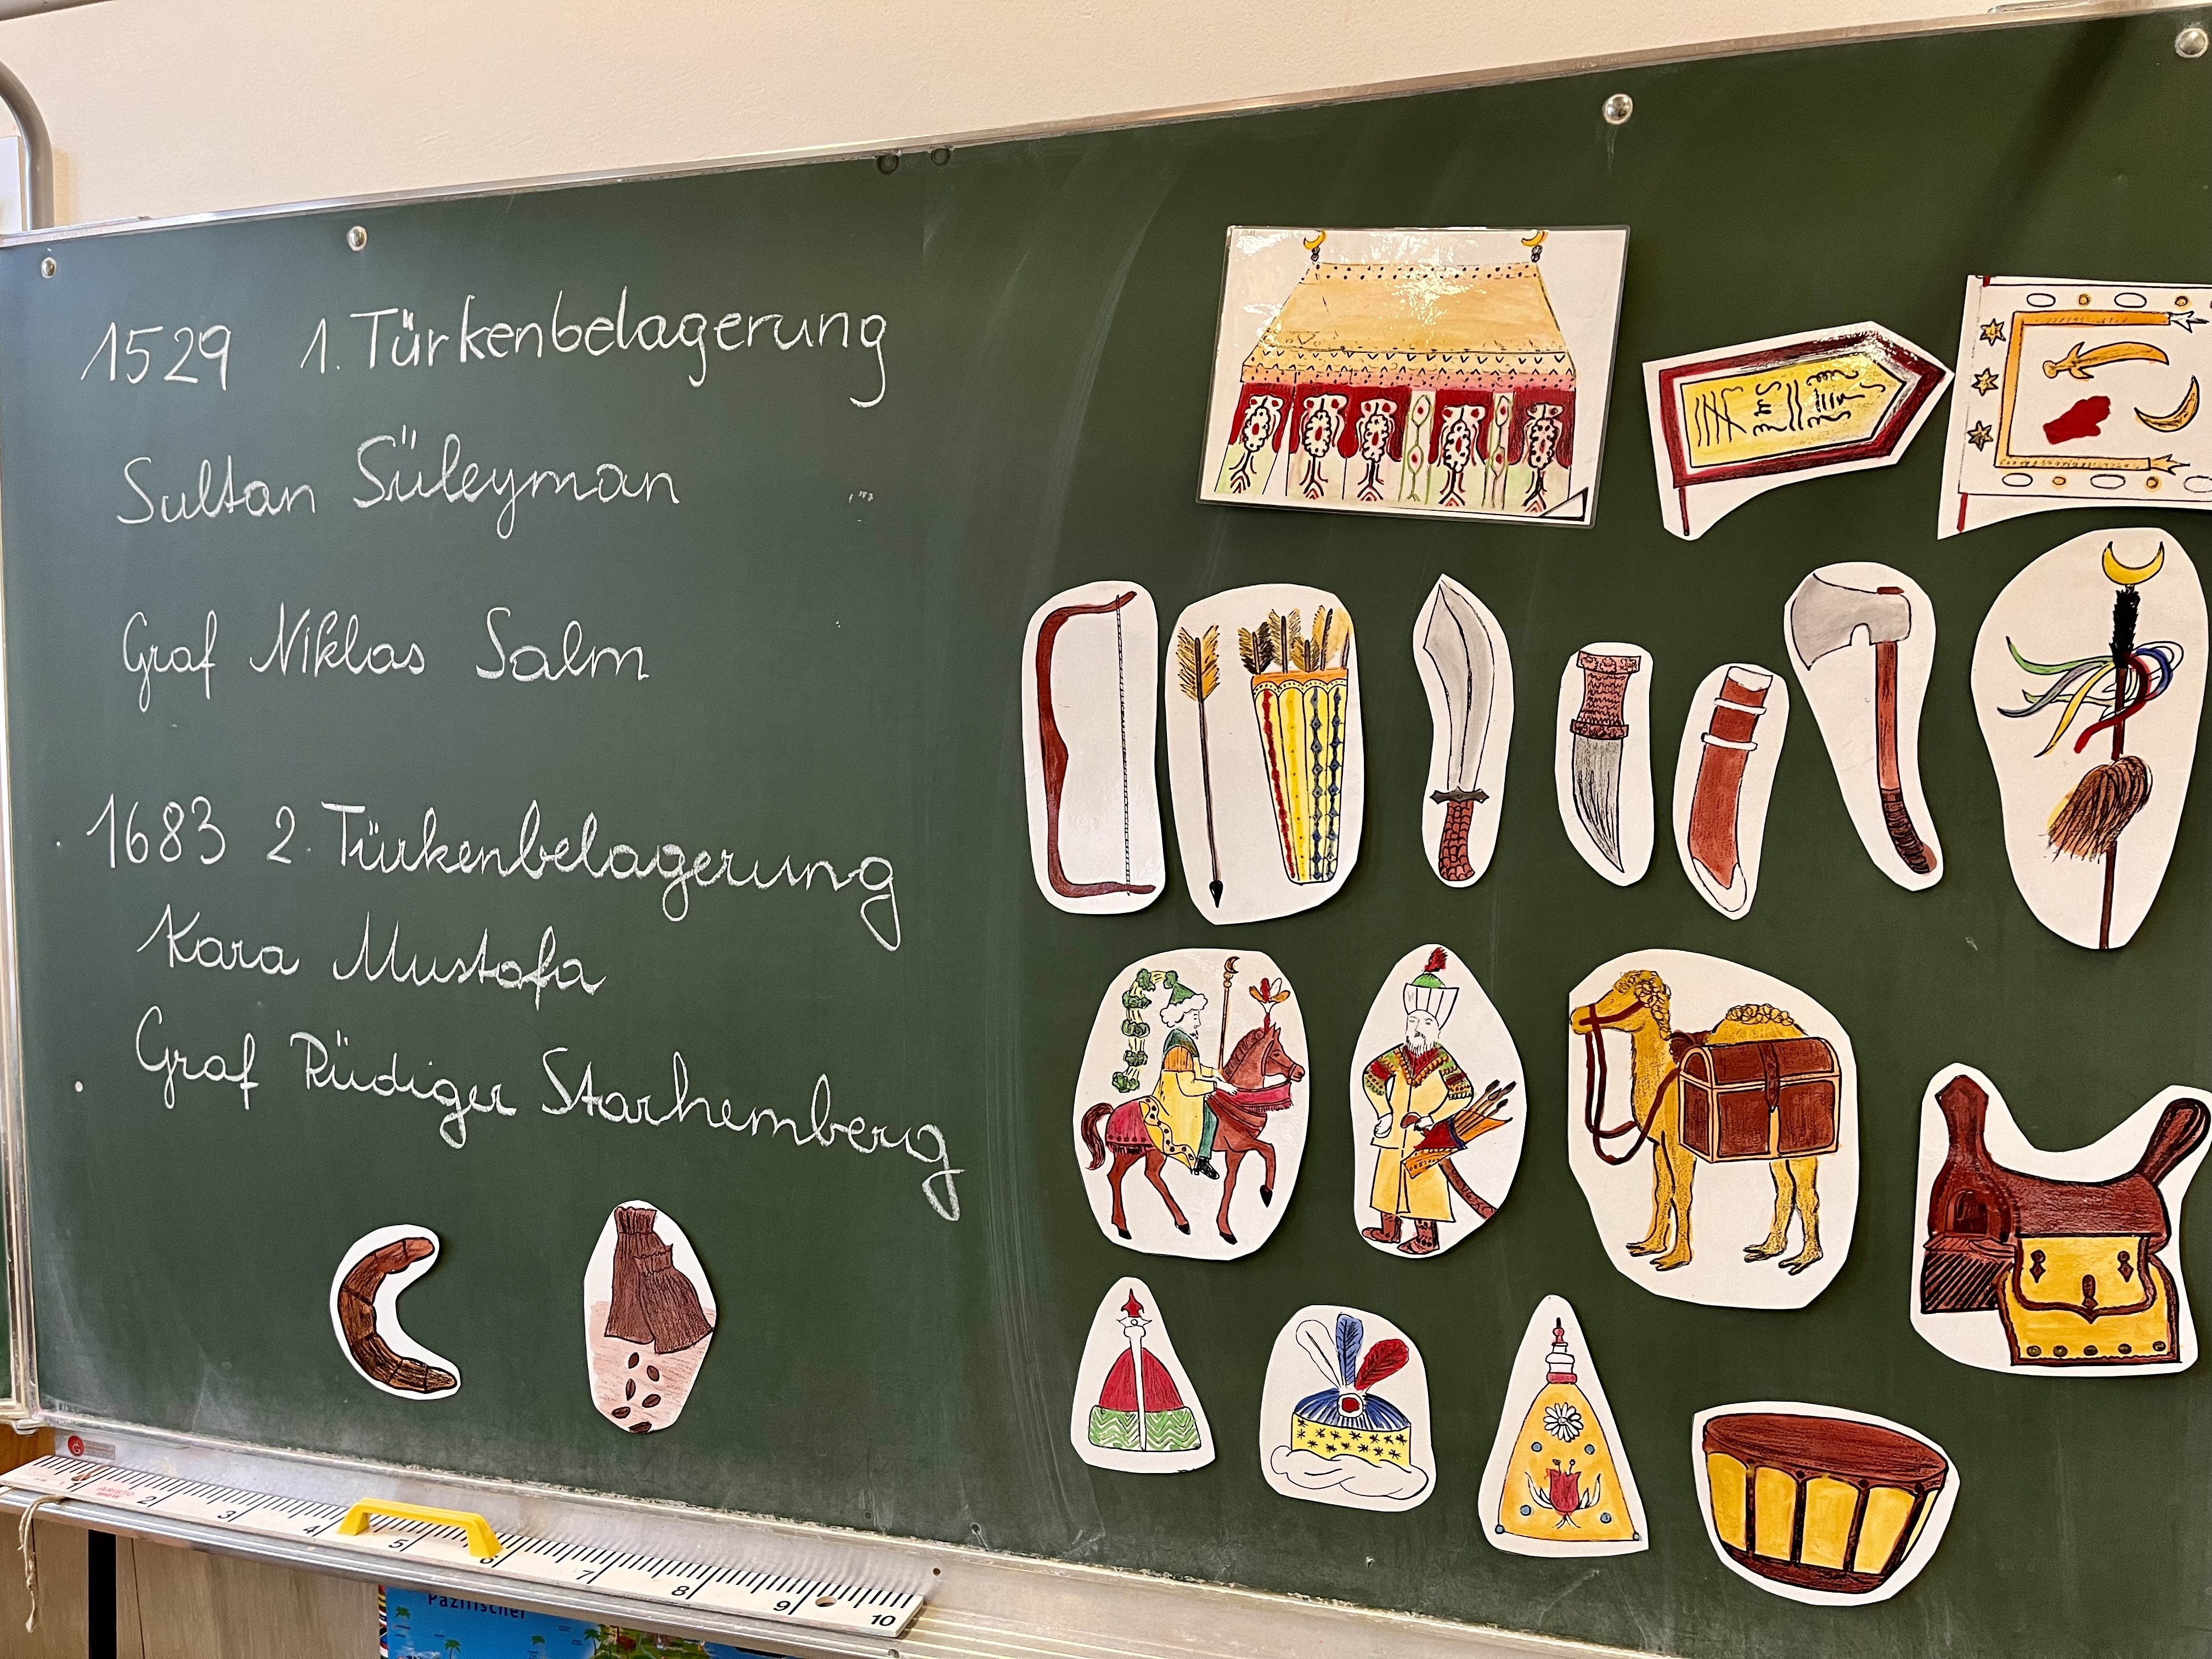 1529 1. Türkenbelagerung
Sultan Süleyman
Graf Niklas Salm
1683 2. Türkenbelagerung
Kara Mustafa
Graf Rüdiger Starhemberg
1 2 3 4 5 6 7 8 9 10
ARISTO
Pazifischer